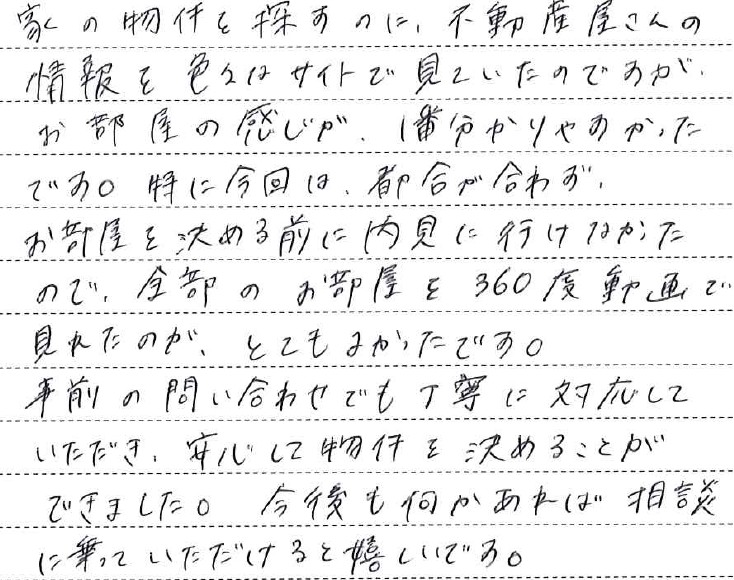 家の物件を探すのに、不動産屋さんの
情報を色々なサイトで見ていたのですが、
お部屋の感じが、1番分かりやすかった
です。特に今回は、都合が合わず、
お部屋を決める前に内見に行けなかった
ので、全部のお部屋を360度動画で
見れたのが、とてもよかったです。
事前の問い合わせでも丁寧に対応して
いただき、安心して物件を決めることが
できました。 今後も何かあれば相談
に乗っていただけると嬉しいです。